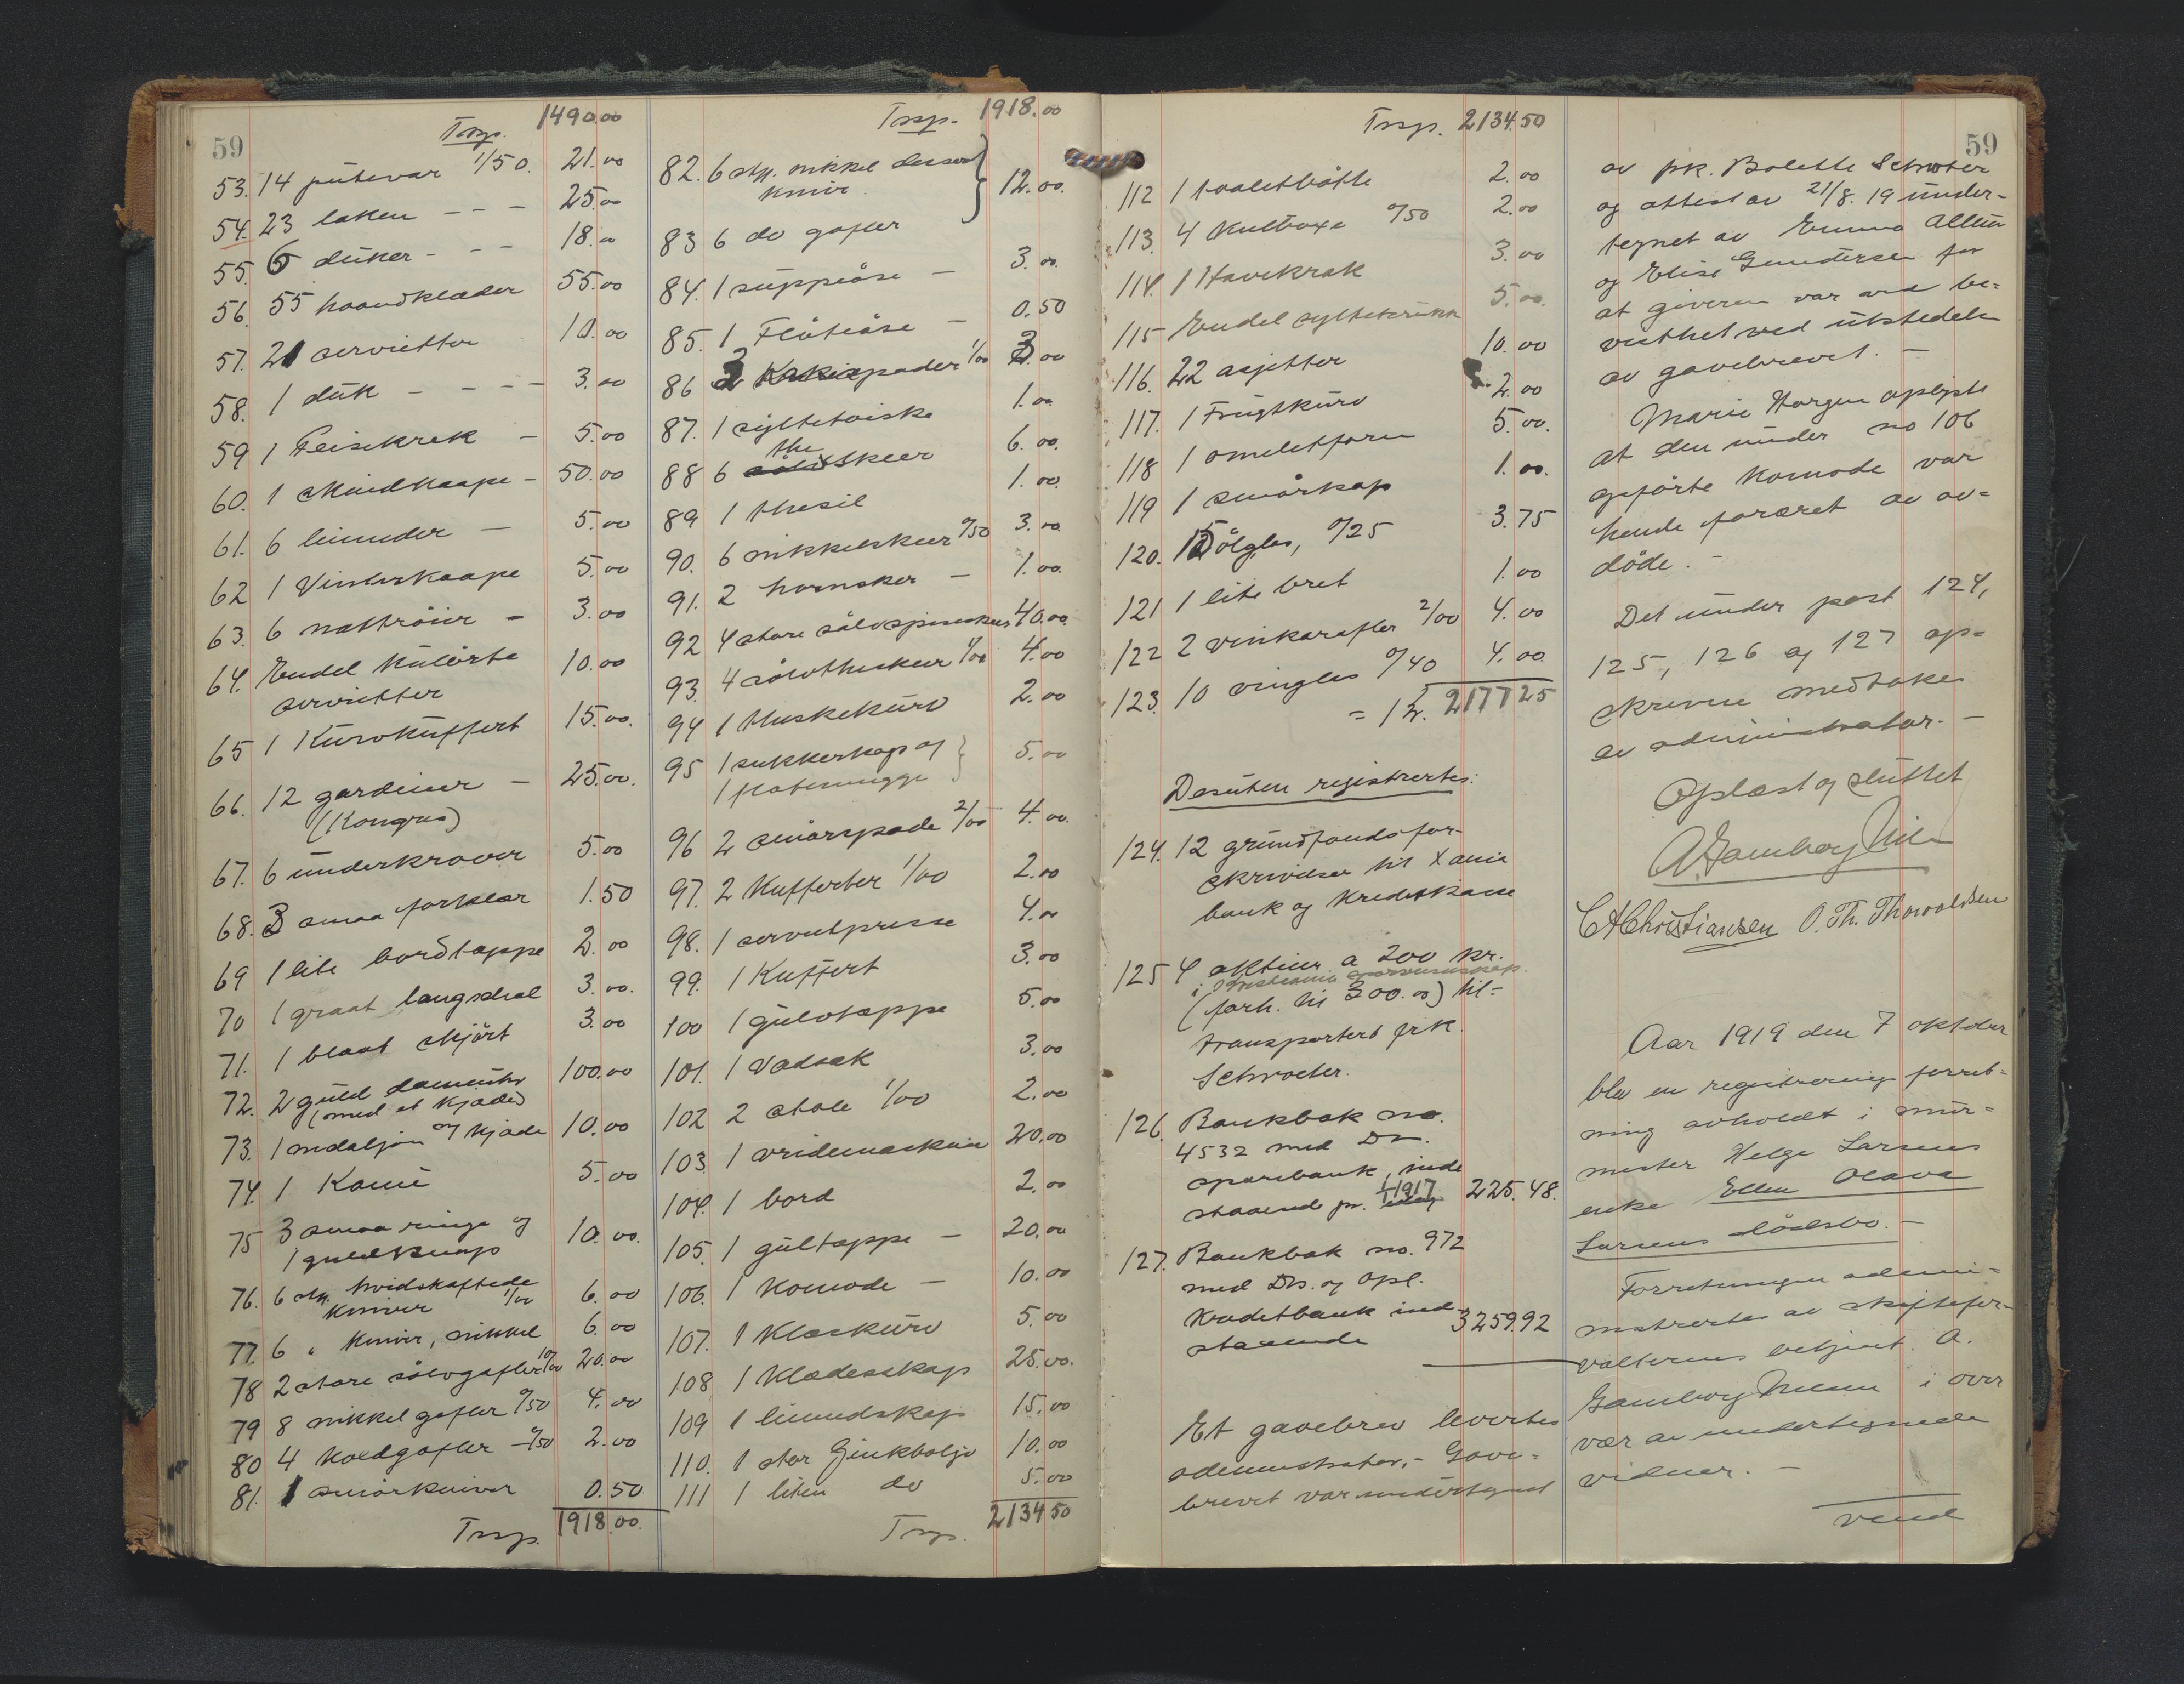 59
Trsp. 1490.00
53. 14 putevar 1/50. 21.00
54. 23 laken - - - 25.00
55. 6 duker - - - 18.00
56. 55 haandklæder 55.00
57. 21 servietter 10.00
58. 1 duk - - - - 3.00
59 1 Peisekrak - 5.00
60. 1 skindkaape - 50.00
61. 6 linunder - 5.00
62 1 Vinterkaape 5.00
63. 6 nattröier - 3.00
64. Endel kulörte
servietter 10.00
65 1 Kurvkuffert 15.00.
66. 12 gardiner - 25.00.
(Kongress)
67. 6 underkraver 5.00
68. 3 smaa forklær 1.50
69 1 lite bordtæppe 2.00
70 1 graat langschal 3.00.
71. 1 blaat skjört 3.00
72. 2 guld dameuhr 100.00
(med et kjæde)
73. 1 medaljon og kjæde 10.00
74. 1 Kame 5.00
75 3 smaa ringe og
1 guldknap 10.00.
76. 6 stk. hvidskaftede
kniver 1/00 6.00
77. 6 " kniver, nikkel 6.00
78 2 store sölvgafler 10/00 20.00
79 8 nikkel gafler 0/50 4.00
80 4 koldgafler - 0/50 2.00
81. 1 smörkniver 0.50
Trsp. 1918.00.
Trsp. 1918.00
82. 6 stk. nikkel dessert
kniv. 12.00.
83 6 do gafler
84. 1 suppeöse - 3.00.
85. 1 Flöteöse - 0.50
86 3 Kakespader 1/00 3.00
87. 1 syltetöiske 1.00
the
88 6 sölvskeer 6.00.
89 1 thesil 1.00.
90. 6 nikkelskeer 0/50 3.00
91. 2 hornskeer - 1.00.
92 4 store sölvspiseskeer 40.00.
93. 4 sölvtheskeer 1/00 4.00
94 1 thuskekurv 2.00
95 1 sukkerkop og
1 flötemugge 5.00
96 2 smörspade 2/00 4.00.
97. 2 Kufferter 1/00 2.00
98. 1 servietpresse 4.00
99. 1 Kuffert 3.00
100 1 gulvtæppe 5.00
101. 1 Vadsæk 3.00
102 2 stole 1/00 2.00
103 1 vridemaskin 20.00
104. 1 bord 2.00
105. 1 gultæppe - 20.00
106. 1 Komode - 10.00
107. 1 Kleskurv 5.00
108 1 Klædesskap 25.00.
109 1 linnedskap 15.00
110. 1 stor Zinkbalje 10.00
111 1 liten do 5.00
Trsp. 2134 50
59
Trsp. 2134.50
112 1 toaletbötte 2.00
113. 4 Kulboxe 0/50 2.00
114. 1 Havekrak 3.00
115 Endel syltekrukk 5.00.
116. 22 asjetter 10.00
117. 1 Frugtkurv 2.00
118 1 omeletform 5.00.
119 1 smörkop 1.00.
120. 15 ölglas, 0/25 3.75
121 1 lite bret 1.00
122 2 vinkarafler 2/00 4.00
123. 10 vinglas 0/40 4.00
= Kr. 2177 25
Desuten registrertes:
124. 12 grundfondsfor-
skrivelser til Xania
bank og Kreditkasse
125 4 aktier a 200 kr.
i Kristiania
(forh. til 300.00) til-
transportert frk.
Schroeter.
126. Bankbok no.
4532 med Dn.
sparebank, inde
staaende pr. 1/1 1917 225.48.
127. Bankbok no. 972
med Drs. og Opl.
Kreditbank ind-
staaende 3259.92
Et gavebrev levertes
administrator. - Gave-
brevet var undertegnet
av frk. Bolette Schroeter
og attest av 21/8. 19 under-
tegnet av Emma Allum
og Elise Gundersen for
at giveren var ved be-
vissthet ved utstedelse
av gavebrevet. -
Marie Horgen oplyste
at den under no 106
opförte Komode var
hende foræret av av-
döde. -
Det under post 124,
125, 126 og 127 op-
skrevne medtokes
av administrator. -
Oplæst og sluttet
A. Gamborg Nilsen
C A Christiansen O. Th. Thorvaldsen
Aar 1919 den 7 oktober
blev en registrerings forret-
ning avholdt i mur-
mester Helge Larsens
enke Ellen Olava
Larsens dödsbo. -
Forretningen admini-
nistrertes av skiftefor-
valterens betjent. A.
Gamborg Nilsen i over
vær av undertegnede
vidner. -
vend